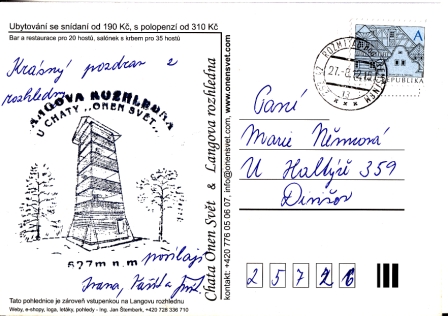 Ubytování se snídaní od 190 Kč, s polopenzí od 310 Kč
Bar a restaurace pro 20 hostů, salónek s krbem pro 35 hostů
Krásný pozdrav z
rozhledny
LANGOVA ROZHLEDNA
U CHATY „ONEN SVĚT"
627 m n.m
posílají
Ivana,
Tato pohlednice je zároveň vstupenkou na Langovu rozhlednu
Weby, e-shopy, loga, letáky, pohledy - Ing. Jan Štemberk, +420 728 336 710
Chata Onen Svět & Langova rozhledna
kontakt: +420 776 05 06 07, info@onensvet.com, www.onensvet.com
A
REPUBLIKA
Paní
Marie Němcová
U Haltýře 359
2 5 7 2 6